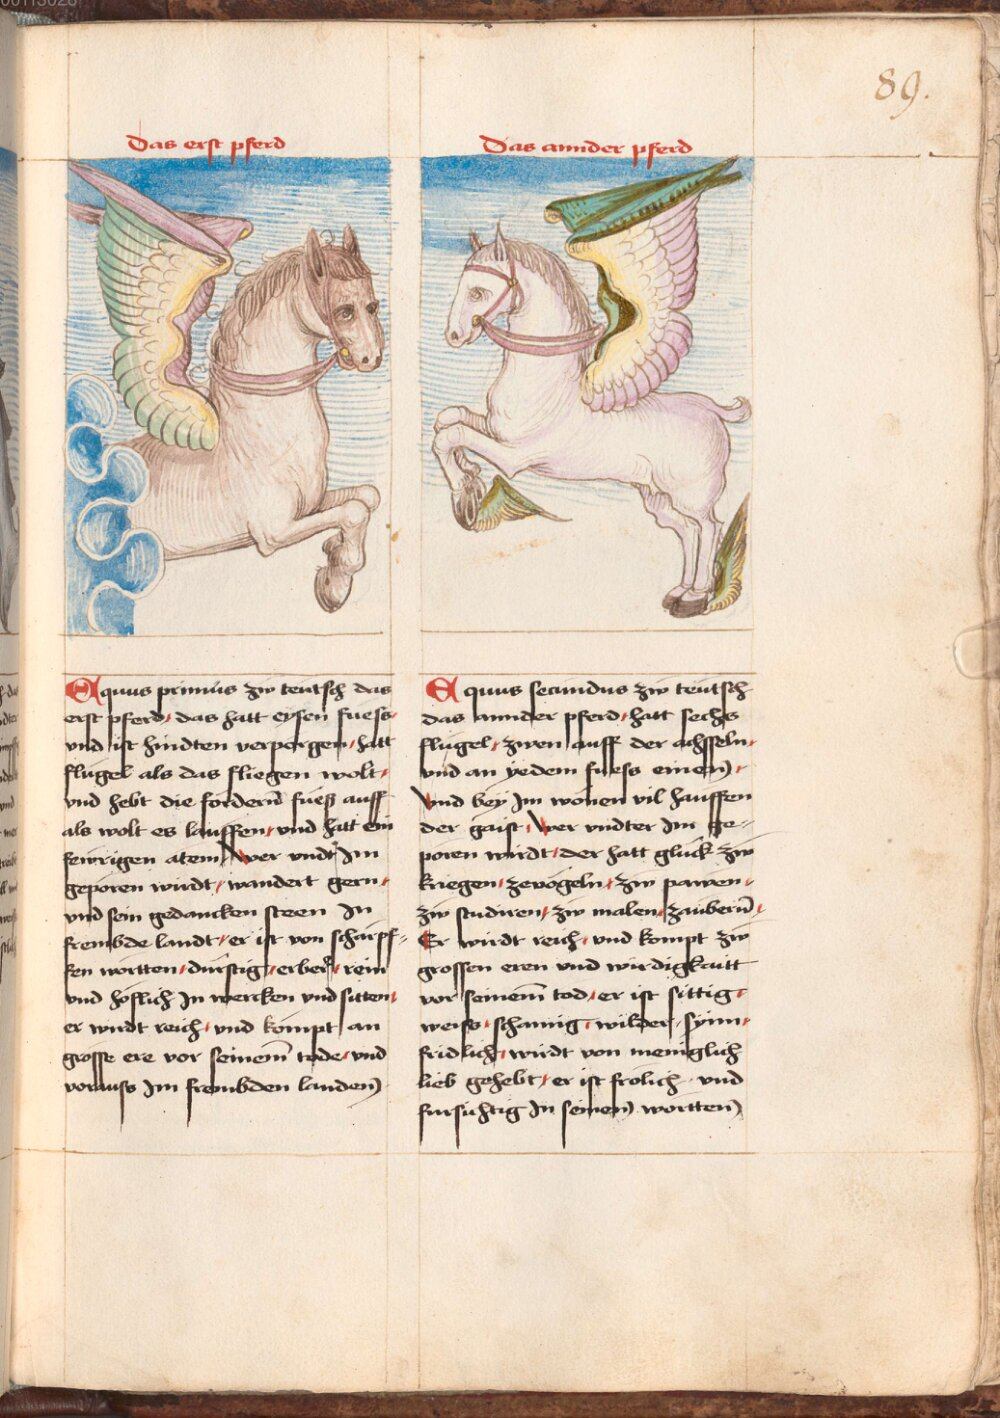 89.
Das erst pferd
Equus primus zw teutsch das
erst pferd, das hatt eysen fuess,
vnd ist hindten verporgen, hatt
flugel als das fliegen wolt,
vnd hebt die fordern fuess auff
als wolt es lauffen, vnd hatt ein
fewrigen atem, Wer vndt Im
geporen wirdt, wandert gern,
vnd sein gedancken steen In
frembde landt, er ist von scharpf-
fen wortten, durstig, erber, rein
vnd höflich In wercken vnd sitten,
er wirdt reich, vnd kompt an
grosse ere vor seinem tode, vnd
voraus Im frembden landen
Das annder pferd
Equus secundus zw teütsch
das annder pferd, hatt sechs
flugel, zwen auff der achsseln,
vnd an yedem fuess einen,
Vnd bey Im wonen vil hauffen
der gaist, Wer vndter Im ge-
poren wirdt, der hatt gluck zw
kriegen, zevogeln, zw pawen,
zw studiren, zw malen, zaubern,
Er wirdt reich, vnd kompt zw
grossen eren vnd wirdigkaitt
vor seinem tod, er ist sittig,
weiss, schamig, wilder, synn,
fridlich, wirdt von meniglich
lieb gehebt, er ist frolich vnd
fursichtig In seinen wortten